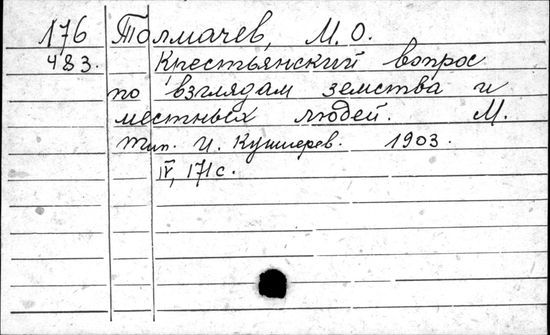 176 Толмачев, М. О.
483. Крестьянский вопрос
по взглядам земства и
местных людей. М.
тип. И. Кушнерев. 1903.
IV, 171 с.